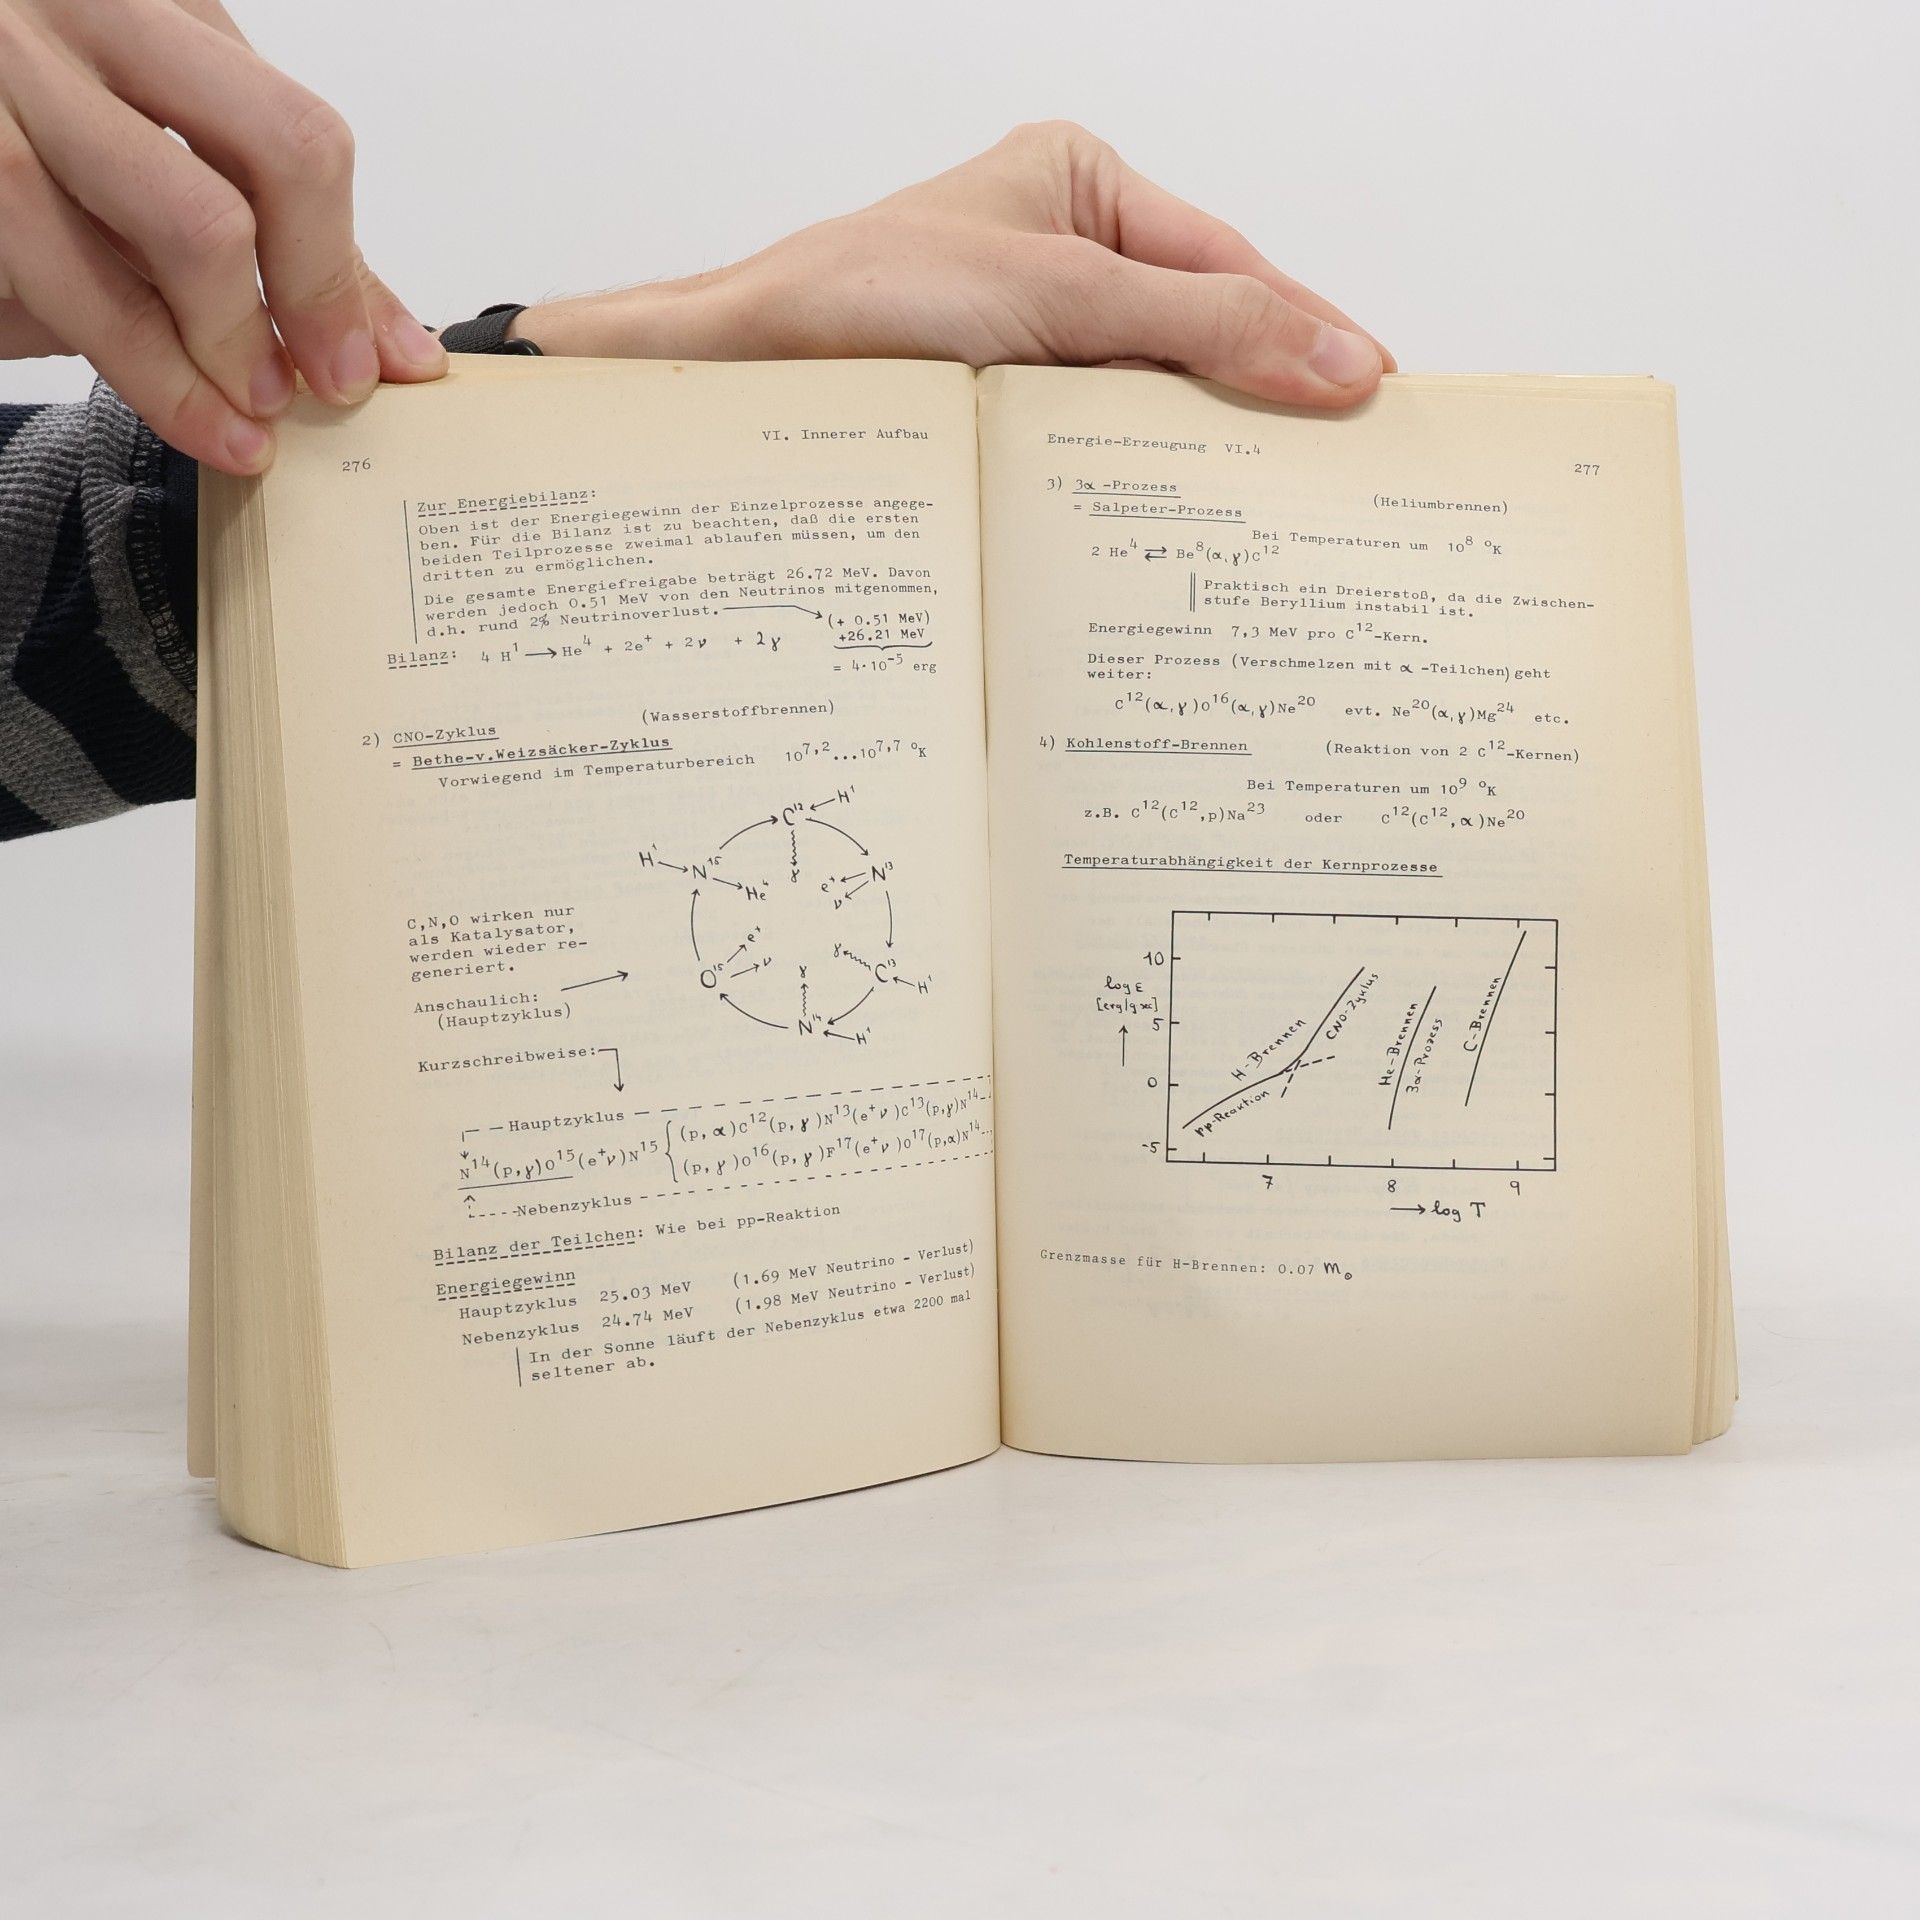 276
VI. Innerer Aufbau
Zur Energiebilanz:
Oben ist der Energiegewinn der Einzelprozesse angege-
ben. Für die Bilanz ist zu beachten, daß die ersten
beiden Teilprozesse zweimal ablaufen müssen, um den
dritten zu ermöglichen.
Die gesamte Energiefreigabe beträgt 26.72 MeV. Davon
werden jedoch 0.51 MeV von den Neutrinos mitgenommen,
d.h. rund 2% Neutrinoverlust.
(+ 0.51 MeV)
Bilanz: 4 H¹ → He⁴ + 2e⁺ + 2ν + 2γ +26.21 MeV
= 4·10⁻⁵ erg
2) CNO-Zyklus (Wasserstoffbrennen)
= Bethe-v.Weizsäcker-Zyklus
Vorwiegend im Temperaturbereich 10⁷,² ... 10⁷,⁷ °K
C¹² H¹
H¹ N¹⁵ He⁴ γ e⁺ ν N¹³
C,N,O wirken nur
als Katalysator,
werden wieder re-
generiert.
O¹⁵ e⁺ ν γ γ C¹³ H¹
N¹⁴ H¹
Anschaulich:
(Hauptzyklus)
Kurzschreibweise:
Hauptzyklus
N¹⁴(p,γ)O¹⁵(e⁺ν)N¹⁵ { (p,α)C¹²(p,γ)N¹³(e⁺ν)C¹³(p,γ)N¹⁴
(p,γ)O¹⁶(p,γ)F¹⁷(e⁺ν)O¹⁷(p,α)N¹⁴
Nebenzyklus
Bilanz der Teilchen: Wie bei pp-Reaktion
Energiegewinn
Hauptzyklus 25.03 MeV (1.69 MeV Neutrino - Verlust)
Nebenzyklus 24.74 MeV (1.98 MeV Neutrino - Verlust)
In der Sonne läuft der Nebenzyklus etwa 2200 mal
seltener ab.
Energie-Erzeugung VI.4
277
3) 3α-Prozess (Heliumbrennen)
= Salpeter-Prozess
Bei Temperaturen um 10⁸ °K
2 He⁴ ⇄ Be⁸(α,γ)C¹²
Praktisch ein Dreierstoß, da die Zwischen-
stufe Beryllium instabil ist.
Energiegewinn 7,3 MeV pro C¹²-Kern.
Dieser Prozess (Verschmelzen mit α-Teilchen) geht
weiter:
C¹²(α,γ)O¹⁶(α,γ)Ne²⁰ evt. Ne²⁰(α,γ)Mg²⁴ etc.
4) Kohlenstoff-Brennen (Reaktion von 2 C¹²-Kernen)
Bei Temperaturen um 10⁹ °K
z.B. C¹²(C¹²,p)Na²³ oder C¹²(C¹²,α)Ne²⁰
Temperaturabhängigkeit der Kernprozesse
10
log ε
[erg/g sec]
5
0
-5
H-Brennen
pp-Reaktion
CNO-Zyklus
He-Brennen
3α-Prozess
C-Brennen
7 8 9
→ log T
Grenzmasse für H-Brennen: 0.07 m⊙